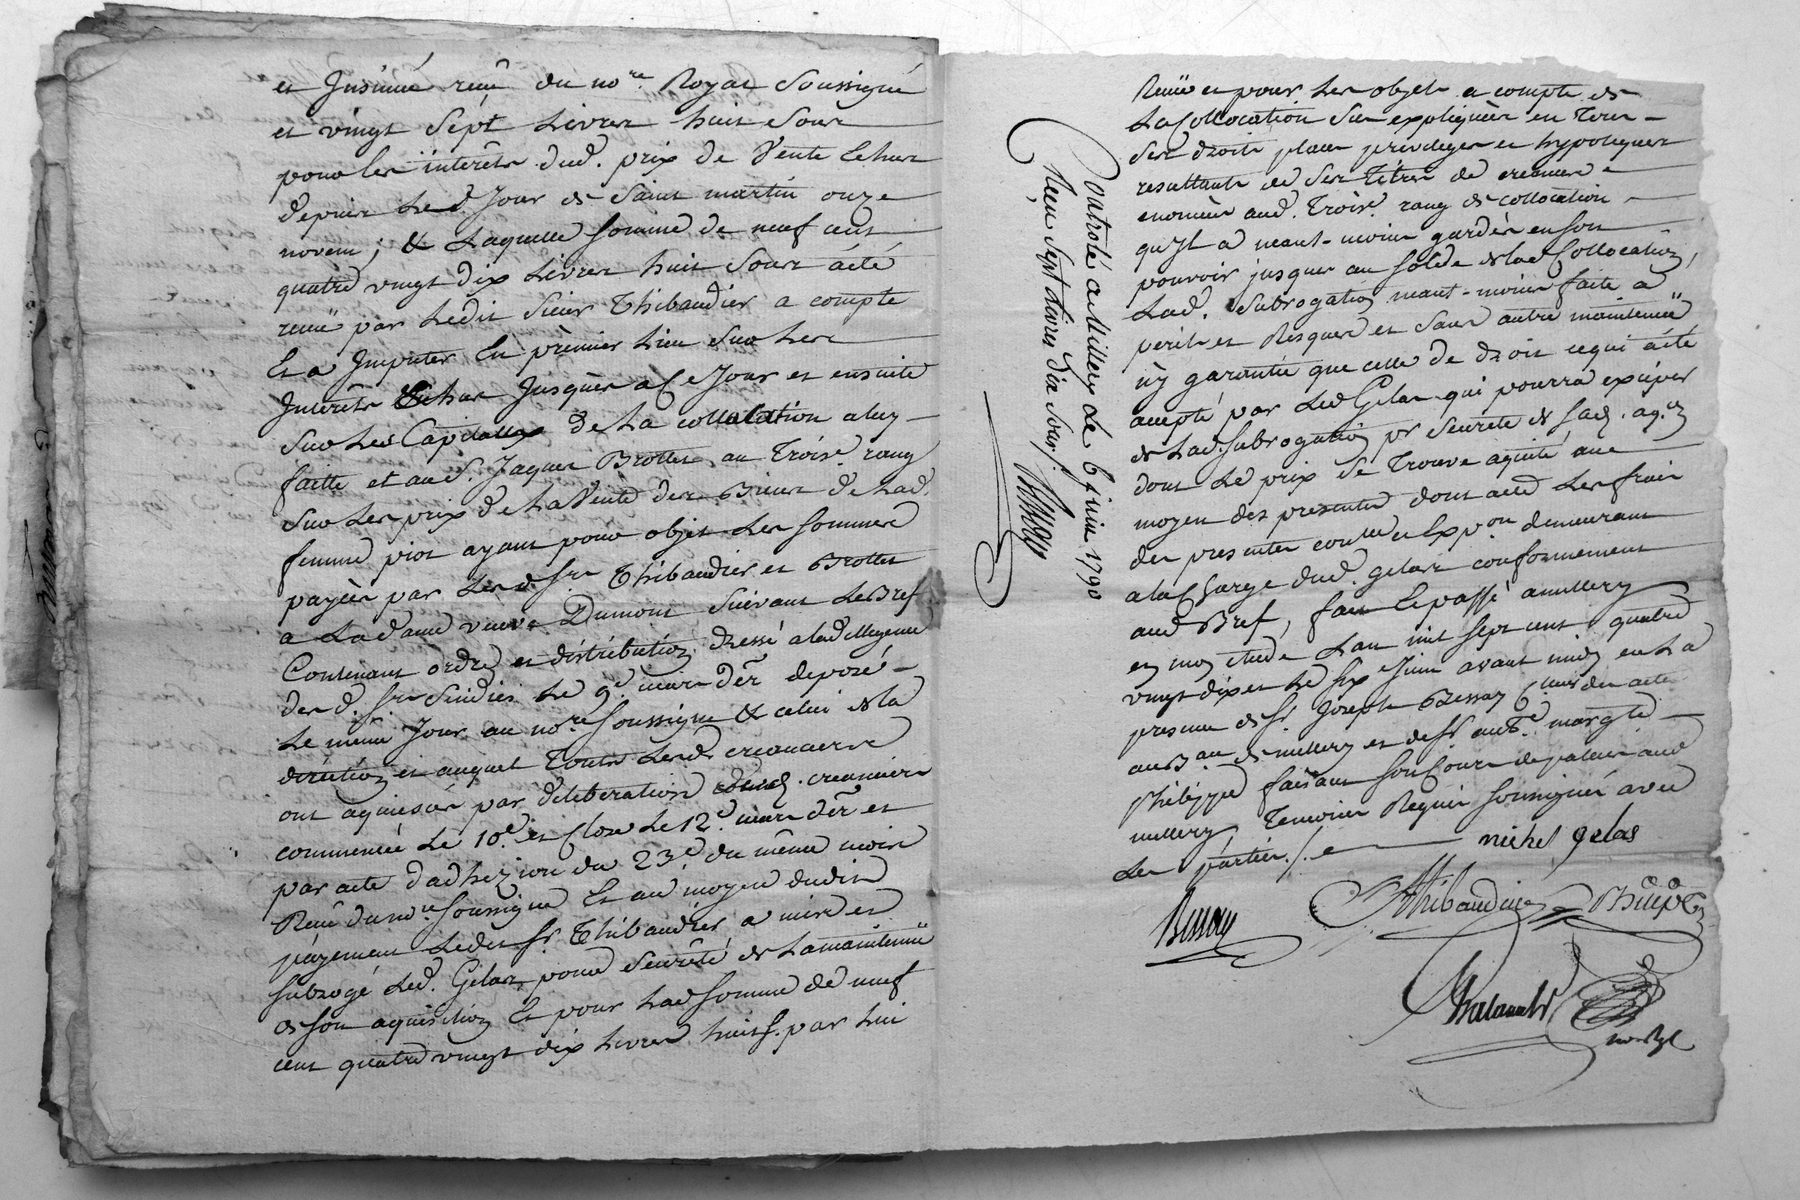 et Insinué reçu du no.re Royal Soussigné
et vingt Sept Livres huit Sous
pour les interêts dud. prix de Vente Echus
depuis Led. Jour de Saint martin onze
novem; & Laquelle Somme de neuf cent
quatre vingt dix Livres huit Sous a été
remü par Ledit Sieur Thibaudier a compte
Et a Imputer En prèmier Lieu Sur Les
Interêts Echus Jusques a Ce Jour et ensuite
Sur Les Capitaux de La collocation a luy
faitte et aud. S. Jaques Brottet au Troise. rang
Sur Les prix de La Vente des Biens de Lad.
femme piot ayant pour objet Les Sommes
payées par Lesd. Srs Thibaudier et Brottet
a La dame veuve Dumont Suivant Le Bref
Contenant ordre et distribution dressé
desd. Srs Sindics Le 9e. mars der deposé
Le même Jour au no.re Soussigné & celui de la
dirèction et auquel Touts Lesd. creanciers
ont aquiescés par déliberation desd. creanciers
commencée Le 10e. et Close Le 12e. mars der et
par acte d'adhezion du 23e. du même mois
Reçu du no.re Soussigné Et au moyen dudit
payement Ledit Sr. Thibaudier a mis et
Subrogé Led. Gelas, pour Seureté de La maintenüe
de Son aquisition Et pour Lad Somme de neuf
cent quatre vingt dix Livres huit S. par Lui
Contrôlé a Millery Le 6 juin 1790
Reçu Sept Livres dix Sous. Bessay
Remüe et pour Les objets a compte de
La Collocation Sus expliquées en Tous
Ses droits places privileges et hypoteques
resultants de Ses Titres de creances
enoncés aud. Troise. rang de collocation
qu'Il a neant-moins gardés en Son
pouvoir jusques au Solde de lad Collocation,
Lad. Subrogation neant-moins faite a
perils et Risques et Sans autre maintenüe
ny garantie que celle de droit ce qui a été
accepté par Led Gelas qui pourra exciper
de Lad. Subrogation pr Seureté de Sad. aq.on
dont Le prix Se Trouve aquité au
moyen des presentes dont acte Les frais
des presentes controlle et Exp.on demeurant
a la Charge dud. gelas conformement
aud Bref, fait Et passé a millery
en mon etude L'an mil Sept cent quatre
vingt dix et Le Six Juin avant midy en La
presence de Sr. Joseph Bessay Cleur des actes
au B.au de millery et de Sr ant.e margte
Philippe faisant Son Cours de palais aud
millery Temoins Requis Soussignés avec
Les parties ./. michel gelas
Bessay Thibaudier Philippe
no. Ryl